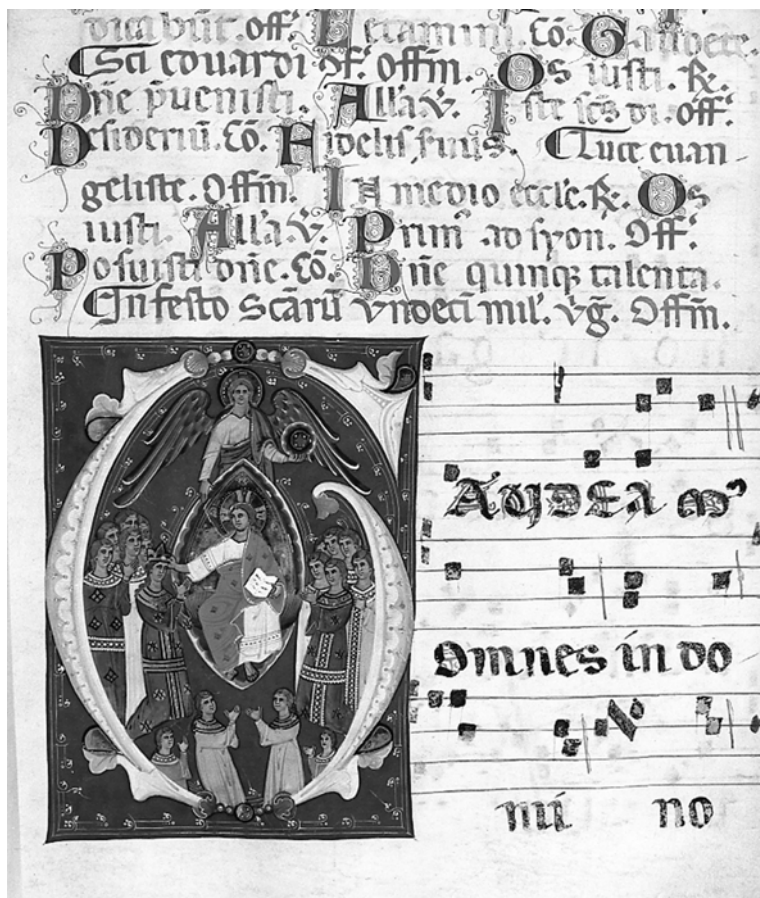 dicabūt. off. Letamini. Cō. Gaudete.
Sci eduardi ɔf. offm̄. Os iusti. ℟.
Dn̄e p̄uenisti. Allʼa. ℣. Iste scs̄ di. off.
Desideriū. Cō. Fidelis seruus. Luce euan
geliste. Offm̄. In medio eccle. ℟. Os
iusti. Allʼa. ℣. Prim ad syon. Off.
Posuisti dn̄e. Cō. Dn̄e quinqꝫ talenta.
In festo Scārū vndeci mil'. vḡ. Offm̄.
GAUDEAm9
omnes in do
mi no